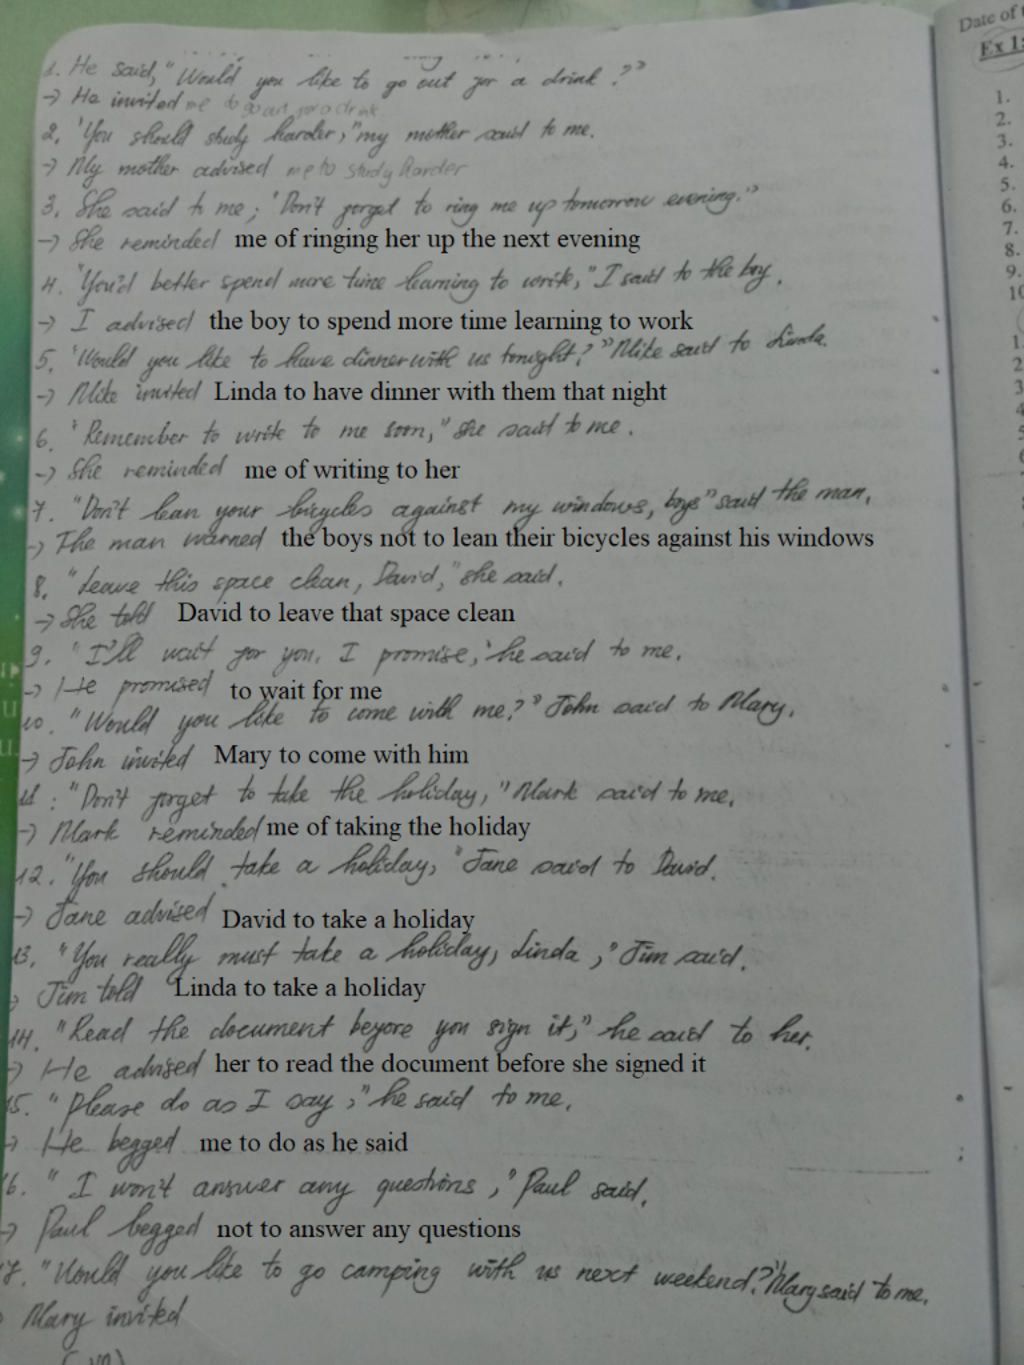 1. He said, "Would you like to go out for a drink?"
→ He invited me to go out for a drink
2. "You should study harder," my mother said to me.
→ My mother advised me to study harder
3. She said to me; "Don't forget to ring me up tomorrow evening."
→ She reminded me of ringing her up the next evening
4. "You'd better spend more time learning to write," I said to the boy.
→ I advised the boy to spend more time learning to work
5. "Would you like to have dinner with us tonight?" Mike said to Linda.
→ Mike invited Linda to have dinner with them that night
6. "Remember to write to me soon," she said to me.
→ She reminded me of writing to her
7. "Don't lean your bicycles against my windows, boys" said the man.
→ The man warned the boys not to lean their bicycles against his windows
8. "Leave this space clean, David," she said.
→ She told David to leave that space clean
9. "I'll wait for you, I promise," he said to me.
→ He promised to wait for me
10. "Would you like to come with me?" John said to Mary.
→ John invited Mary to come with him
11: "Don't forget to take the holiday," Mark said to me.
→ Mark reminded me of taking the holiday
12. "You should take a holiday," Jane said to David.
→ Jane advised David to take a holiday
13. "You really must take a holiday, Linda," Jim said.
→ Jim told Linda to take a holiday
14. "Read the document before you sign it," he said to her.
→ He advised her to read the document before she signed it
15. "Please do as I say," he said to me.
→ He begged me to do as he said
16. "I won't answer any questions," Paul said.
→ Paul begged not to answer any questions
17. "Would you like to go camping with us next weekend?" Mary said to me.
→ Mary invited
Date of
Ex 1:
1.
2.
3.
4.
5.
6.
7.
8.
9.
10
1.
2
3
4
5